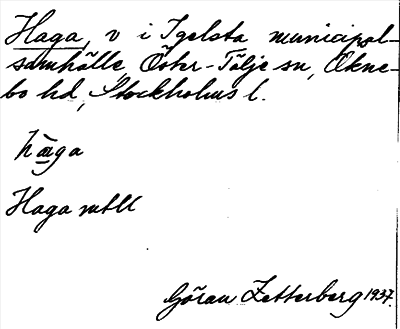 Haga, v i Igelsta municipal-
samhälle, Öster-Tälje sn, Økne-
bo hd, Stockholms l.
haga
Haga mtll
Göran Zetterberg 1937.